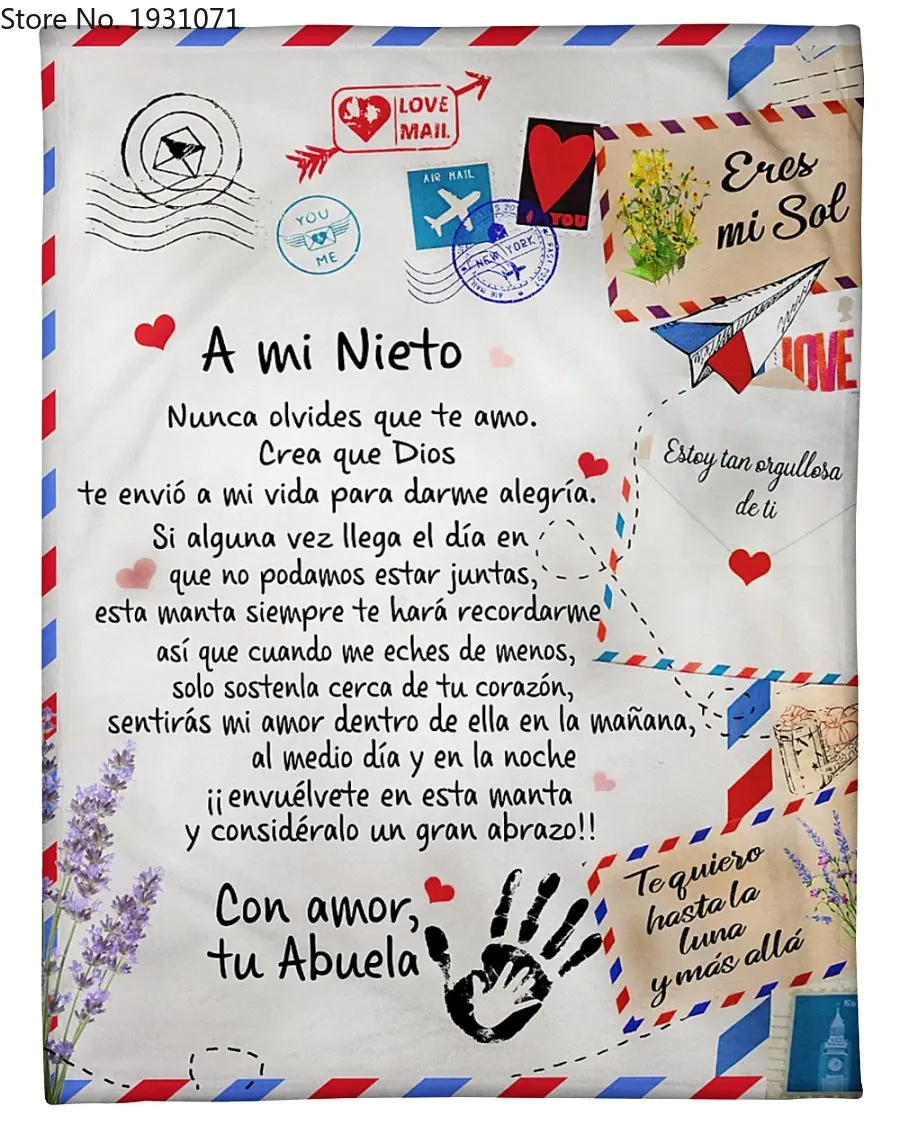 Store No. 1931071
LOVE
MAIL
AIR MAIL
YOU
ME
I YOU
NEW YORK
FAST POST
AIR MAIL
Eres
mi Sol
LOVE
A mi Nieto
Nunca olvides que te amo.
Crea que Dios
te envió a mi vida para darme alegría.
Si alguna vez llega el día en
que no podamos estar juntas,
esta manta siempre te hará recordarme
así que cuando me eches de menos,
solo sostenla cerca de tu corazón,
sentirás mi amor dentro de ella en la mañana,
al medio día y en la noche
¡¡envuélvete en esta manta
y considéralo un gran abrazo!!
Con amor,
tu Abuela
Estoy tan orgullosa
de ti
Te quiero
hasta la
luna
y más allá